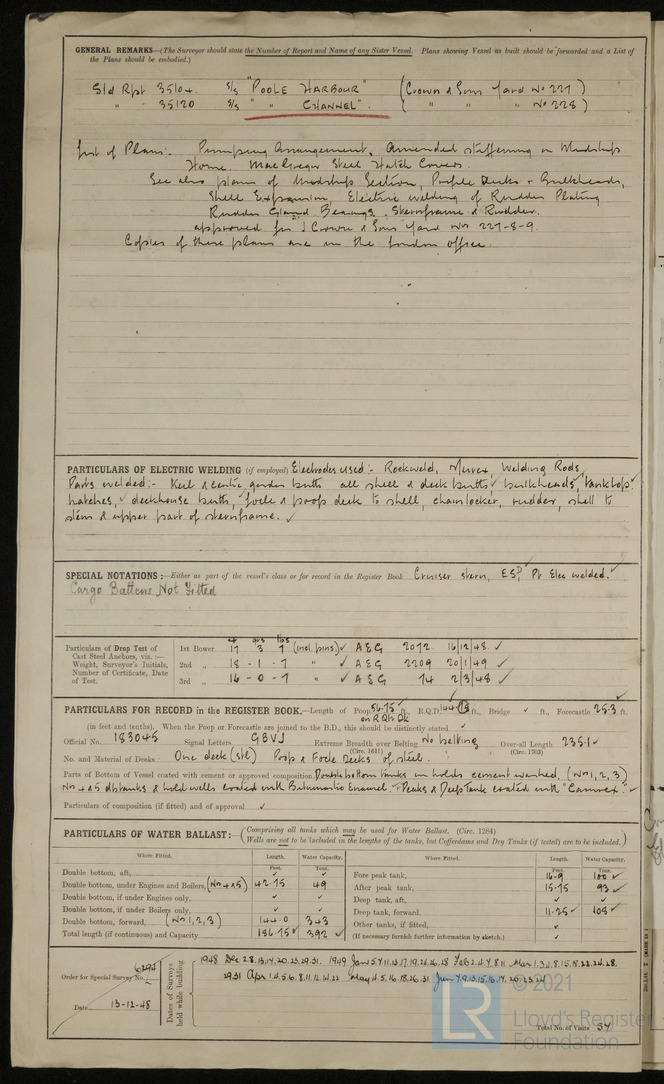 GENERAL REMARKS—(The Surveyor should state the Number of Report and Name of any Sister Vessel. Plans showing Vessel as built should be forwarded and a List of
the Plans should be embodied.)
Sld Rpt 35104. S/S "POOLE HARBOUR" (Crown & Sons Yard No 227)
" " 35120 S/S " " CHANNEL". ( " " " No 228)
List of Plans:- Pumping Arrangement, Amended stiffening in Midships
MacGregor Steel Hatch Covers.
See also plans of Midship Section, Profile Decks & Bulkheads,
Shell Expansion, Electric welding of Rudder Plating
Rudder Gland Bearings, Sternframe & Rudder.
approved for J Crown & Sons Yard Nos 227-8-9.
Copies of these plans are in the London office.
PARTICULARS OF ELECTRIC WELDING (if employed) Electrodes used:- Rockweld, Murex, Welding Rods
Parts welded:- Keel & centre girder butts all shell & deck butts bulkheads, tank top
hatches, deckhouse butts, focle & poop deck to shell, chainlocker, rudder, shell to
stem & upper part of sternframe.
SPECIAL NOTATIONS:—Either as part of the vessel's class or for record in the Register Book Cruiser stern, ESD, Pt Elec welded.
Cargo Battens Not Fitted
Particulars of Drop Test of
Cast Steel Anchors, viz.:—
Weight, Surveyor's Initials,
Number of Certificate, Date
of Test.
cwt qrs lbs
1st Bower 17 3 7 (incl. pins) A E G 2072 16/12/48
2nd " 18 - 1 - 7 " A E G 2209 20/1/49
3rd " 16 - 0 - 7 " A E G 74 2/3/48
PARTICULARS FOR RECORD in the REGISTER BOOK.—Length of Poop 56.75 ft., R.Q.D. ft., Bridge ft., Forecastle 25.3 ft.
on R Qtr Dk
(in feet and tenths). When the Poop or Forecastle are joined to the B.D., this should be distinctly stated.
Official No. 183045 Signal Letters GBVJ Extreme Breadth over Belting No belting Over-all Length 235.1
(Circ. 1611) (Circ. 1703)
No. and Material of Decks One deck (stl) Poop & Focle Decks of steel.
Parts of Bottom of Vessel coated with cement or approved composition Double bottom tanks in holds cement washed, (Nos 1, 2, 3)
No 4 & 5 db tanks & hold wells coated with Bitumastic Enamel. Peaks & Deep Tank coated with "Camrex".
Particulars of composition (if fitted) and of approval
PARTICULARS OF WATER BALLAST:— (Comprising all tanks which may be used for Water Ballast. (Circ. 1284)
Wells are not to be included in the lengths of the tanks, but Cofferdams and Dry Tanks (if tested) are to be included.)
Where Fitted. Length. Water Capacity. Where Fitted. Length. Water Capacity.
Feet. Tons. Feet. Tons.
Double bottom, aft, Fore peak tank, 16.9 100
Double bottom, under Engines and Boilers, (No 4 & 5) 42.75 49 After peak tank, 15.75 93
Double bottom, if under Engines only, Deep tank, aft,
Double bottom, if under Boilers only, Deep tank, forward, 11.25 105
Double bottom, forward, (No 1, 2, 3) 144.0 343 Other tanks, if fitted,
Total length (if continuous) and Capacity 186.75 392 (If necessary furnish further information by sketch.)
Order for Special Survey No. 6294
Date 13-12-48
Dates of Surveys
held while building
1948 Dec 2.8.13.14.20.23.29.31. 1949 Jan 5.7.11.13.17.19.24.26.28 Feb 2.4.7.8.11. Mar 1.3.4.8.15.18.22.24.28.
29.31 Apr 1.4.5.6.8.11.12.14.22 May 4.5.16.18.26.31 Jun 7.9.13.15.16.17.20.23.24
Total No. of Visits 54
LR
© 2021
Lloyd's Register
Foundation